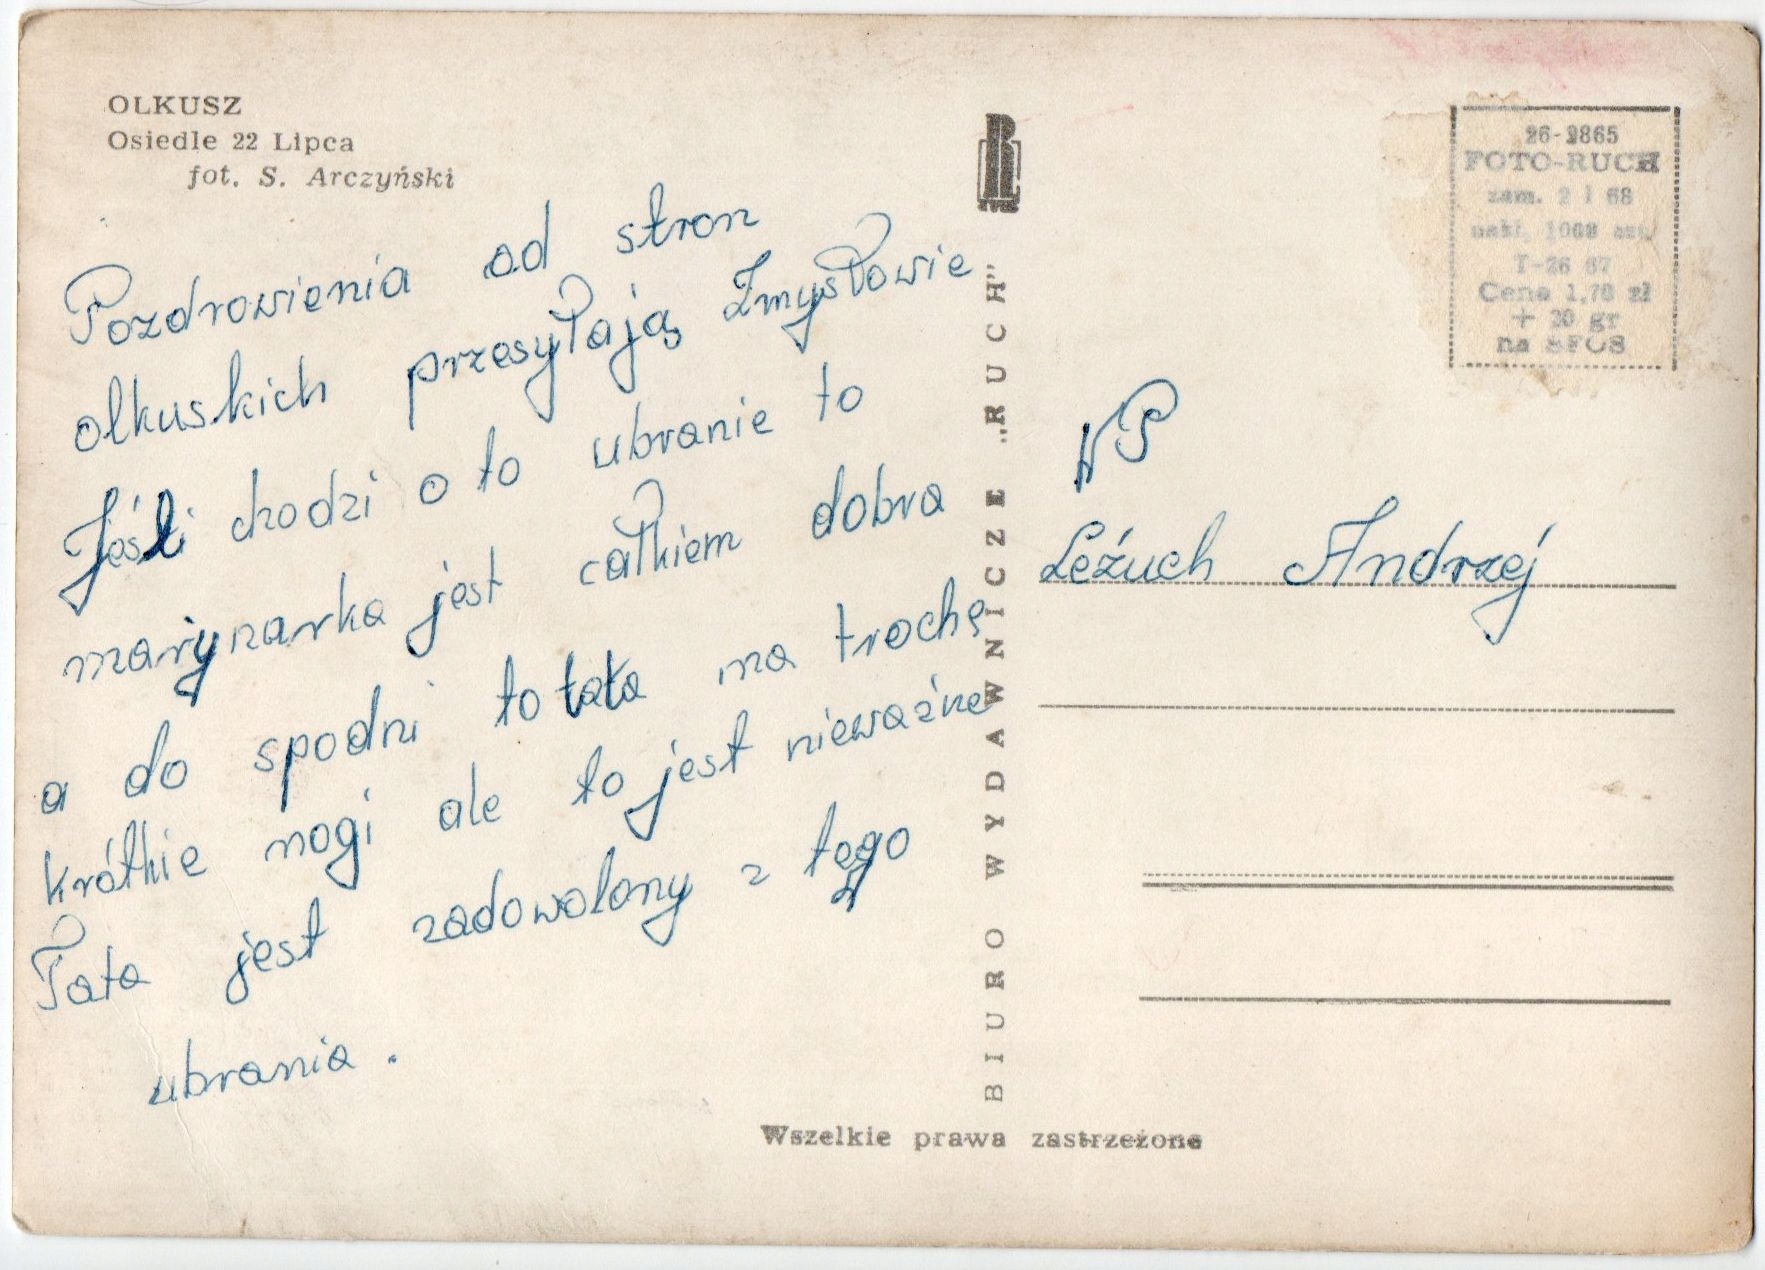 OLKUSZ
Osiedle 22 Lipca
fot. S. Arczyński
Pozdrowienia od stron
olkuskich przesyłają Zmysłowie
Jeśli chodzi o to ubranie to
marynarka jest całkiem dobra
a do spodni to tata ma trochę
krótkie nogi ale to jest nieważne
Tata jest zadowolony z tego
ubrania.
BIURO WYDAWNICZE „RUCH"
26-2865
FOTO-RUCH
zam. 2 I 68
nakł. 1000 szt.
T-26 67
Cena 1,70 zł
+ 20 gr
na SFOS
WP
Leźuch Andrzej
Wszelkie prawa zastrzeżone